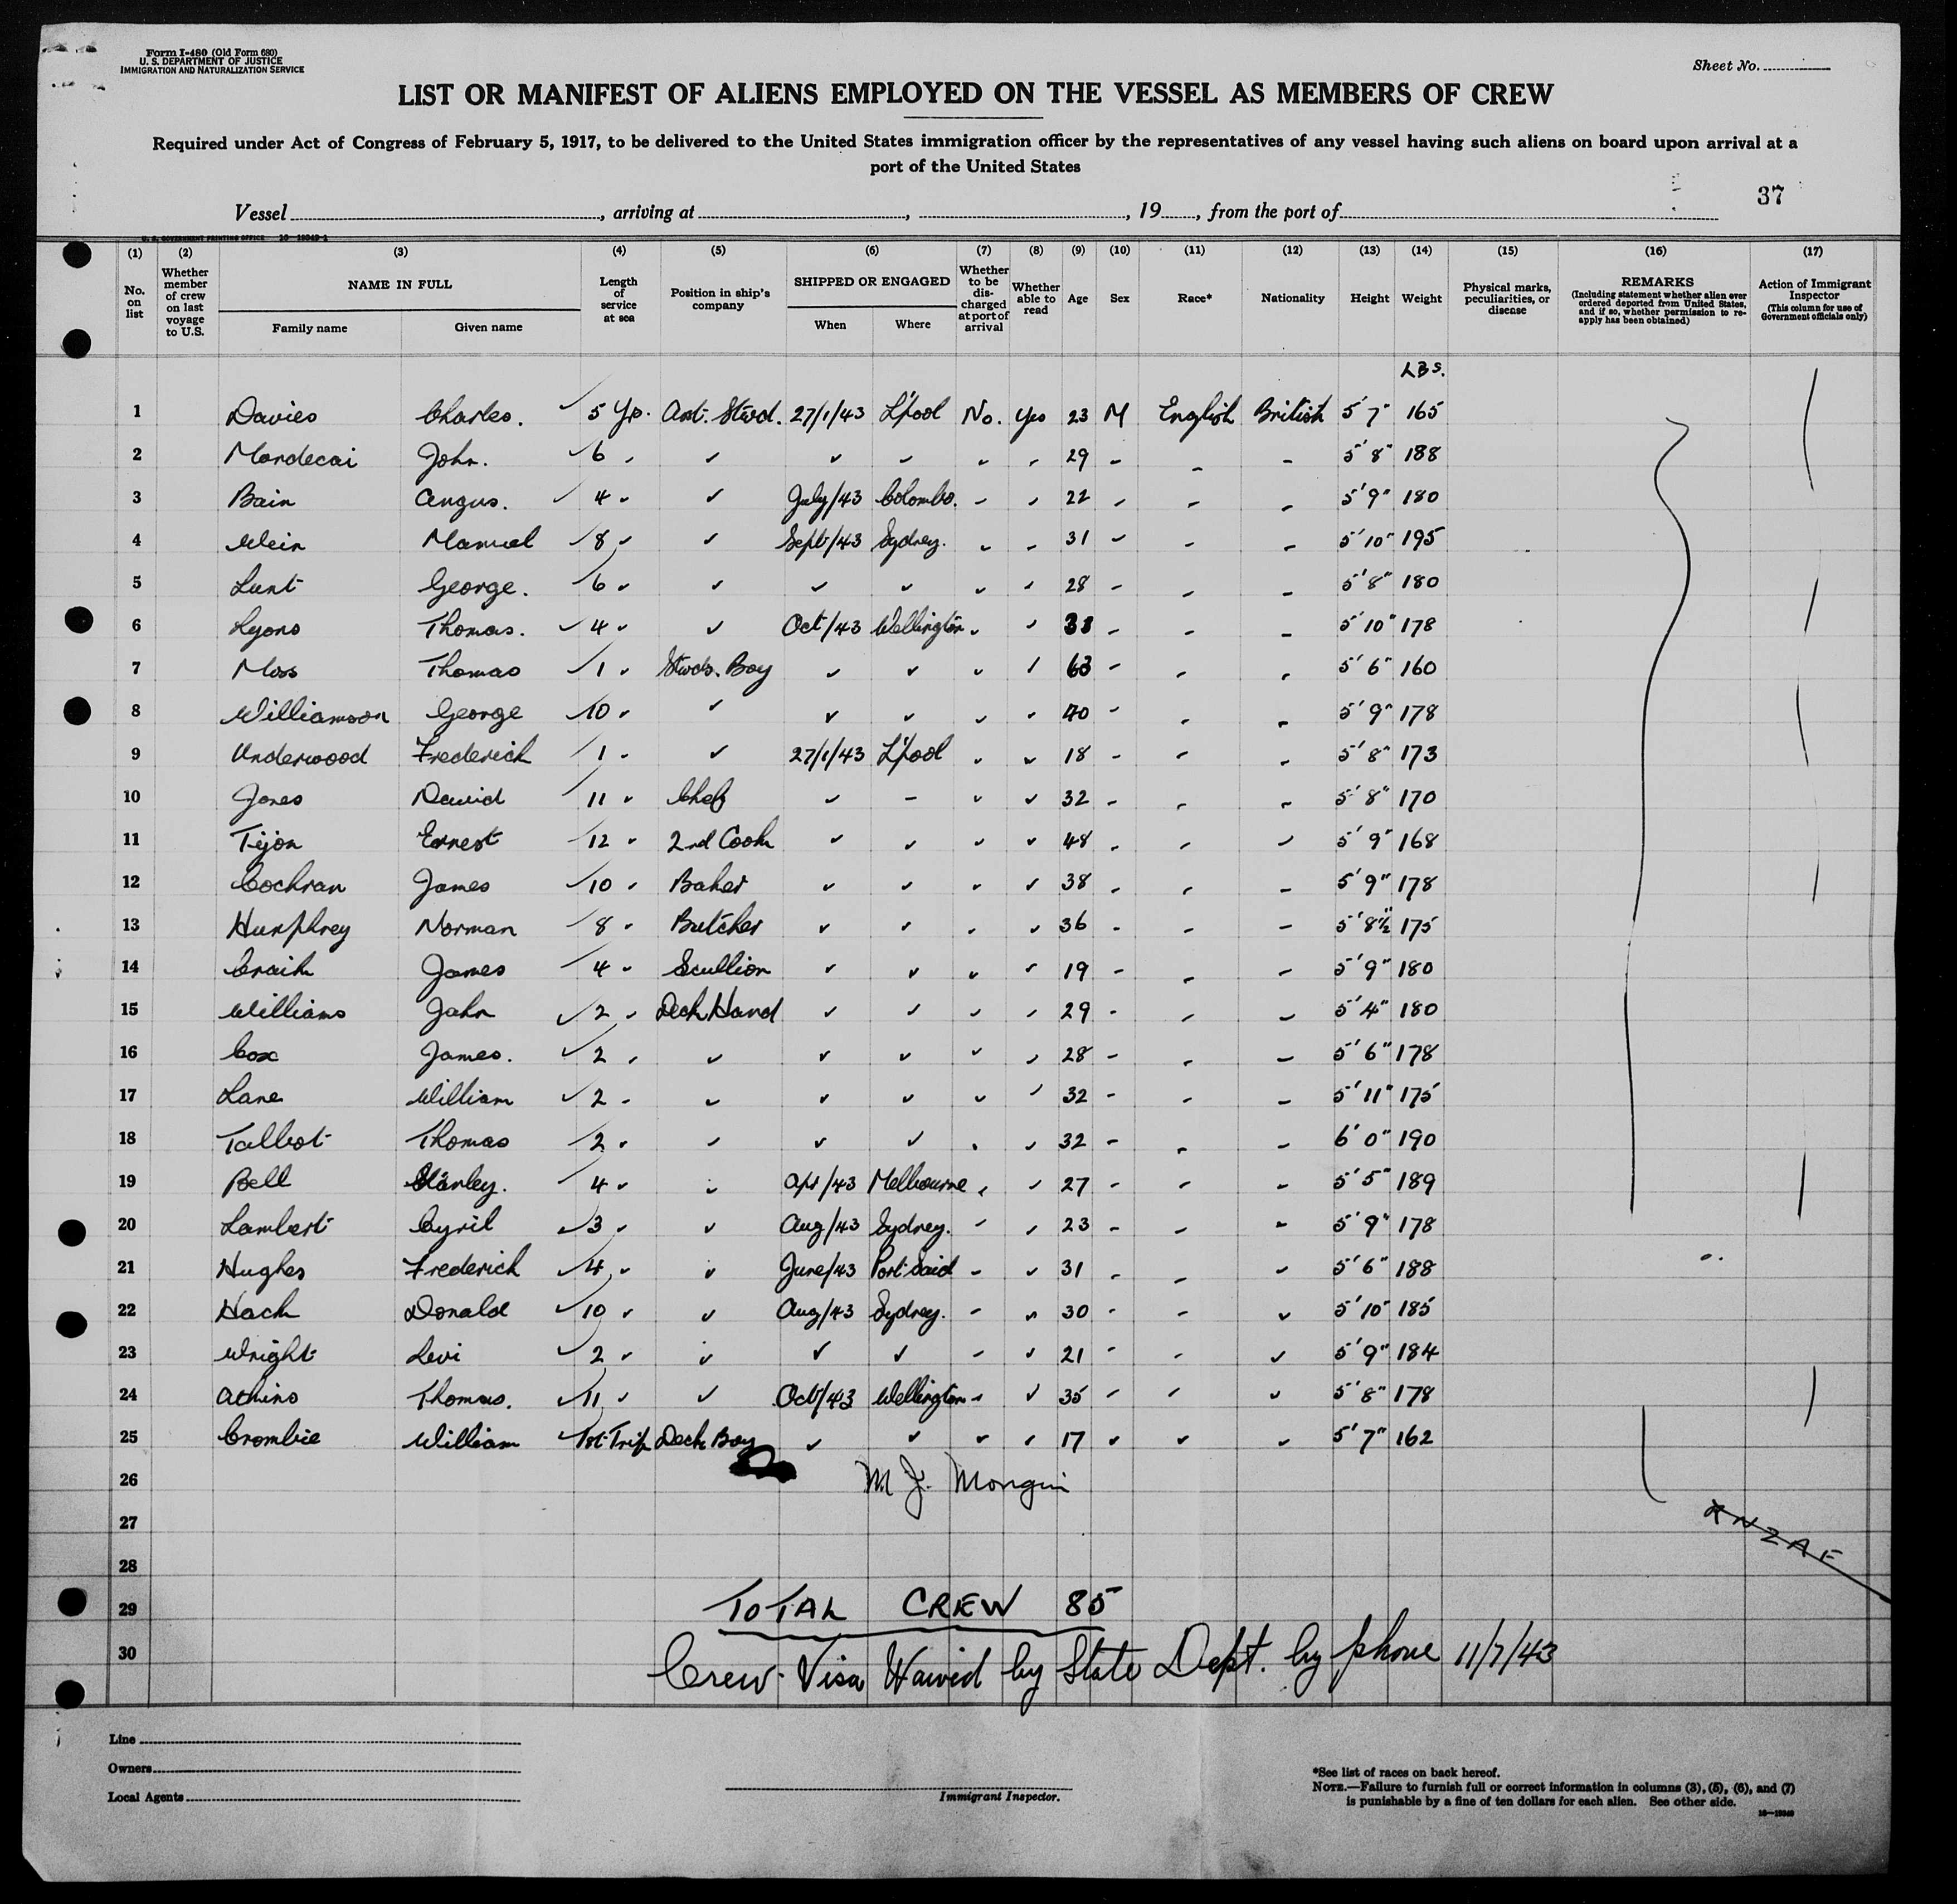 Form I-480 (Old Form 680)
U. S. DEPARTMENT OF JUSTICE
IMMIGRATION AND NATURALIZATION SERVICE
Sheet No.
LIST OR MANIFEST OF ALIENS EMPLOYED ON THE VESSEL AS MEMBERS OF CREW
Required under Act of Congress of February 5, 1917, to be delivered to the United States immigration officer by the representatives of any vessel having such aliens on board upon arrival at a
port of the United States
37
Vessel , arriving at , , 19 , from the port of
U. S. GOVERNMENT PRINTING OFFICE
(1) (2) (3) (4) (5) (6) (7) (8) (9) (10) (11) (12) (13) (14) (15) (16) (17)
No. on list
Whether member of crew on last voyage to U.S.
NAME IN FULL
Family name Given name
Length of service at sea
Position in ship's company
SHIPPED OR ENGAGED
When Where
Whether to be dis-charged at port of arrival
Whether able to read
Age Sex Race* Nationality Height Weight
Physical marks, peculiarities, or disease
REMARKS
(Including statement whether alien ever ordered deported from United States, and if so, whether permission to re-apply has been obtained)
Action of Immigrant Inspector
(This column for use of Government officials only)
LBS.
1 Davies Charles. ✓ 5 Yr. Asst. Stwd. 27/1/43 L'pool No. Yes 23 M English British 5' 7" 165
2 Mordecai John. ✓ 6 29 5' 8" 188
3 Bain Angus. ✓ 4 July/43 Colombo. 22 5' 9" 180
4 Weir Manuel ✓ 8 Sept/43 Sydney. 31 5' 10" 195
5 Lunt George. ✓ 6 28 5' 8" 180
6 Lyons Thomas. ✓ 4 Oct/43 Wellington 5' 10" 178
7 Moss Thomas ✓ 1 Stwds. Boy 63 5' 6" 160
8 Williamson George 10 40 5' 9" 178
9 Underwood Frederick 1 27/1/43 L'pool 18 5' 8" 173
10 Jones David 11 Chef 32 5' 8" 170
11 Ernest 12 2nd Cook 48 5' 9" 168
12 Cochran James 10 Baker 38 5' 9" 178
13 Humphrey Norman 8 Butcher 36 5' 8½" 175
14 Craik James 4 Scullion 19 5' 9" 180
15 Williams John ✓ 2 Deck Hand 29 5' 4" 180
16 Cox James. ✓ 2 28 5' 6" 178
17 Lane William ✓ 2 32 5' 11" 175
18 Talbot Thomas 2 32 6' 0" 190
19 Bell Stanley. 4 Apr/43 Melbourne 27 5' 5" 189
20 Lambert Cyril ✓ 3 Aug/43 Sydney. 23 5' 9" 178
21 Hughes Frederick ✓ 4 June/43 Port Said 31 5' 6" 188
22 Hack Donald ✓ 10 Aug/43 Sydney. 30 5' 10" 185
23 Wright Levi ✓ 2 21 5' 9" 184
24 Atkins Thomas. ✓ 11 Oct/43 Wellington 35 5' 8" 178
25 Crombie William ✓ 1st Trip Deck Boy 17 5' 7" 162
26 M. J. Mongin
27 RNZAF
28
29 TOTAL CREW 85
30 Crew Visa Waived by State Dept. by phone 11/7/43
Line
Owners
Local Agents
Immigrant Inspector.
*See list of races on back hereof.
NOTE.—Failure to furnish full or correct information in columns (3), (5), (6), and (7)
is punishable by a fine of ten dollars for each alien. See other side.